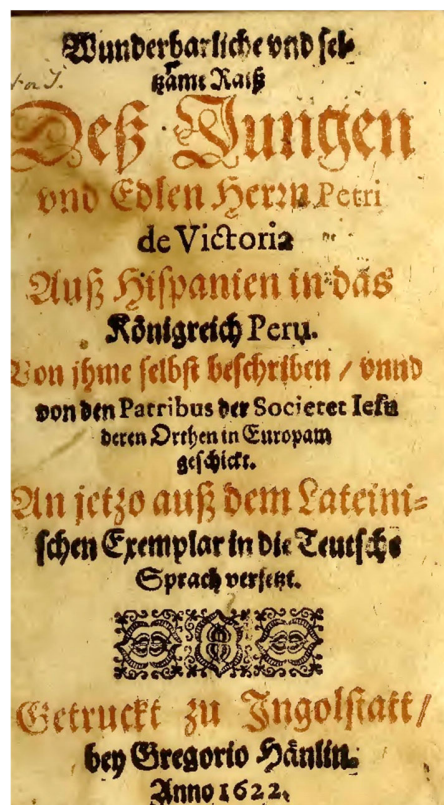 Wunderbarliche vnd sel-
tzame Raiß
Deß Jungen
vnd Edlen Herrn Petri
de Victoria
Auß Hispanien in das
Königreich Peru.
Von jhme selbst beschriben / vnnd
von den Patribus der Societet Iesu
deren Orthen in Europam
geschickt.
An jetzo auß dem Lateini-
schen Exemplar in die Teutsche
Sprach versetzt.
Getruckt zu Ingolstatt /
bey Gregorio Hänlin.
Anno 1622.